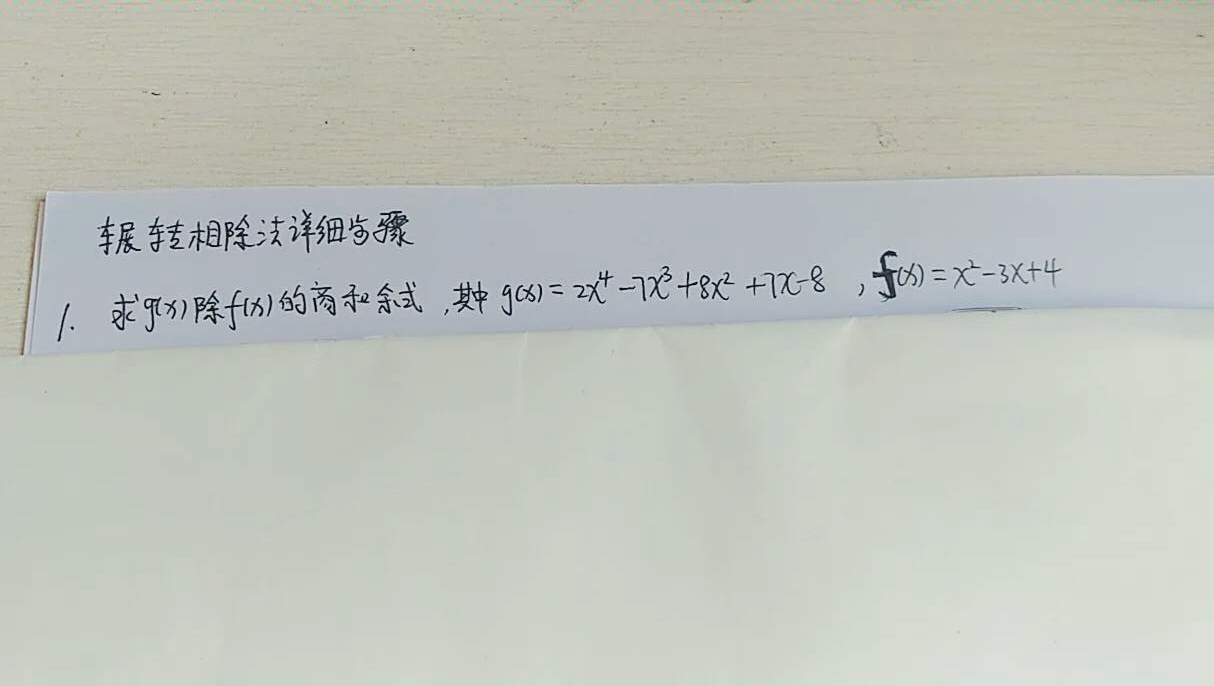 辗转相除法详细步骤
1. 求g(x)除f(x)的商和余式,其中g(x)=2x⁴-7x³+8x²+7x-8,f(x)=x²-3x+4